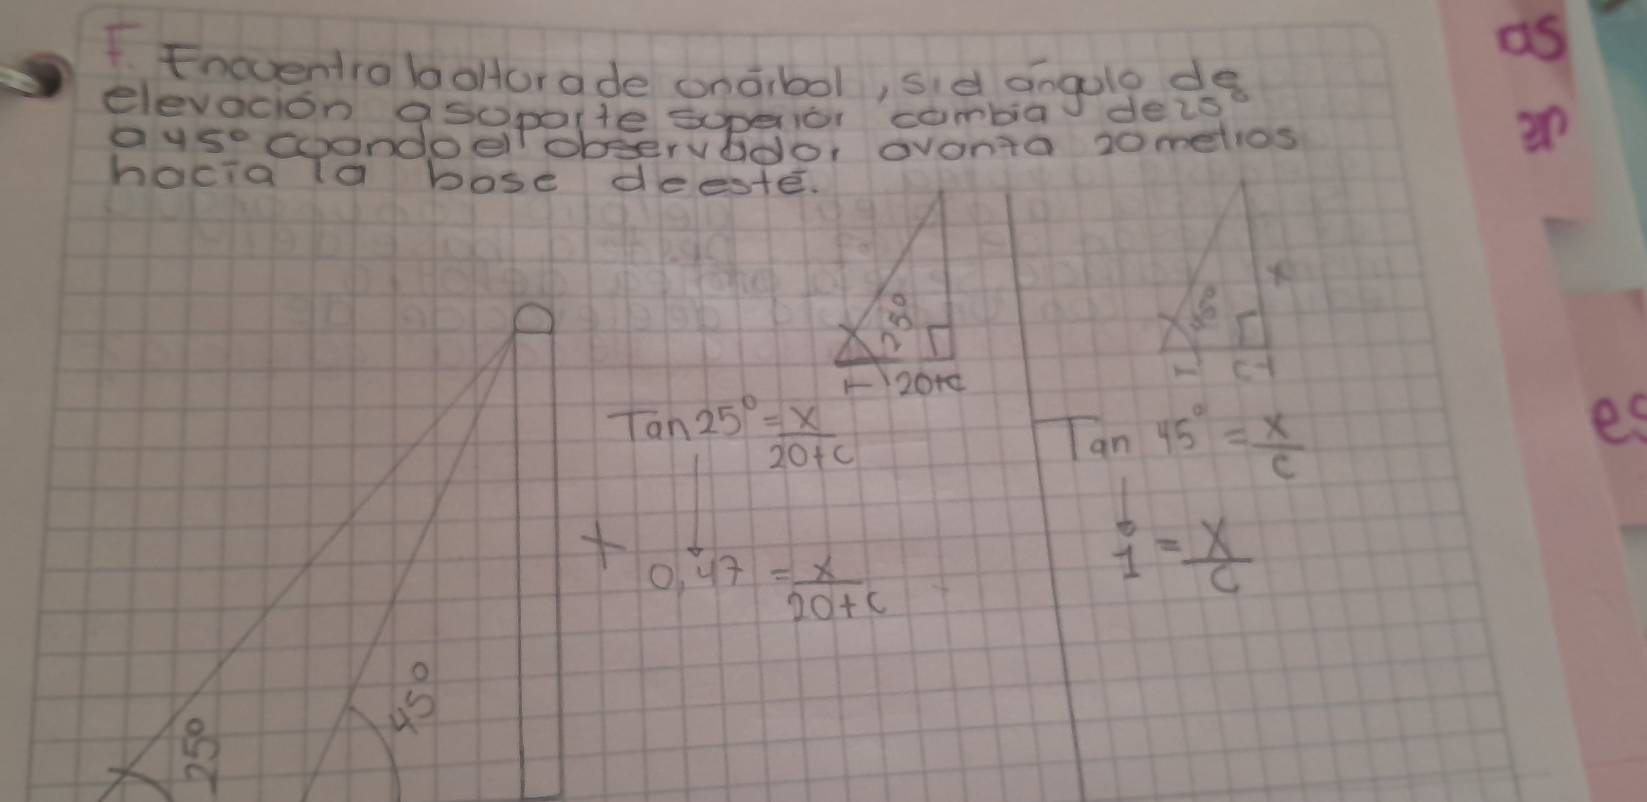 F. Encuentra la altura de un árbol, si el ángulo de
elevación a su parte superior cambia de 25°
a 45° cuando el observador avanza 20 metros
hacia la base de este.
25°
45°
25°
20+c
Tan 25° = x / 20+c
0,47 = x / 20+c
45°
x
c
Tan 45° = x / c
1 = x / c
as
es